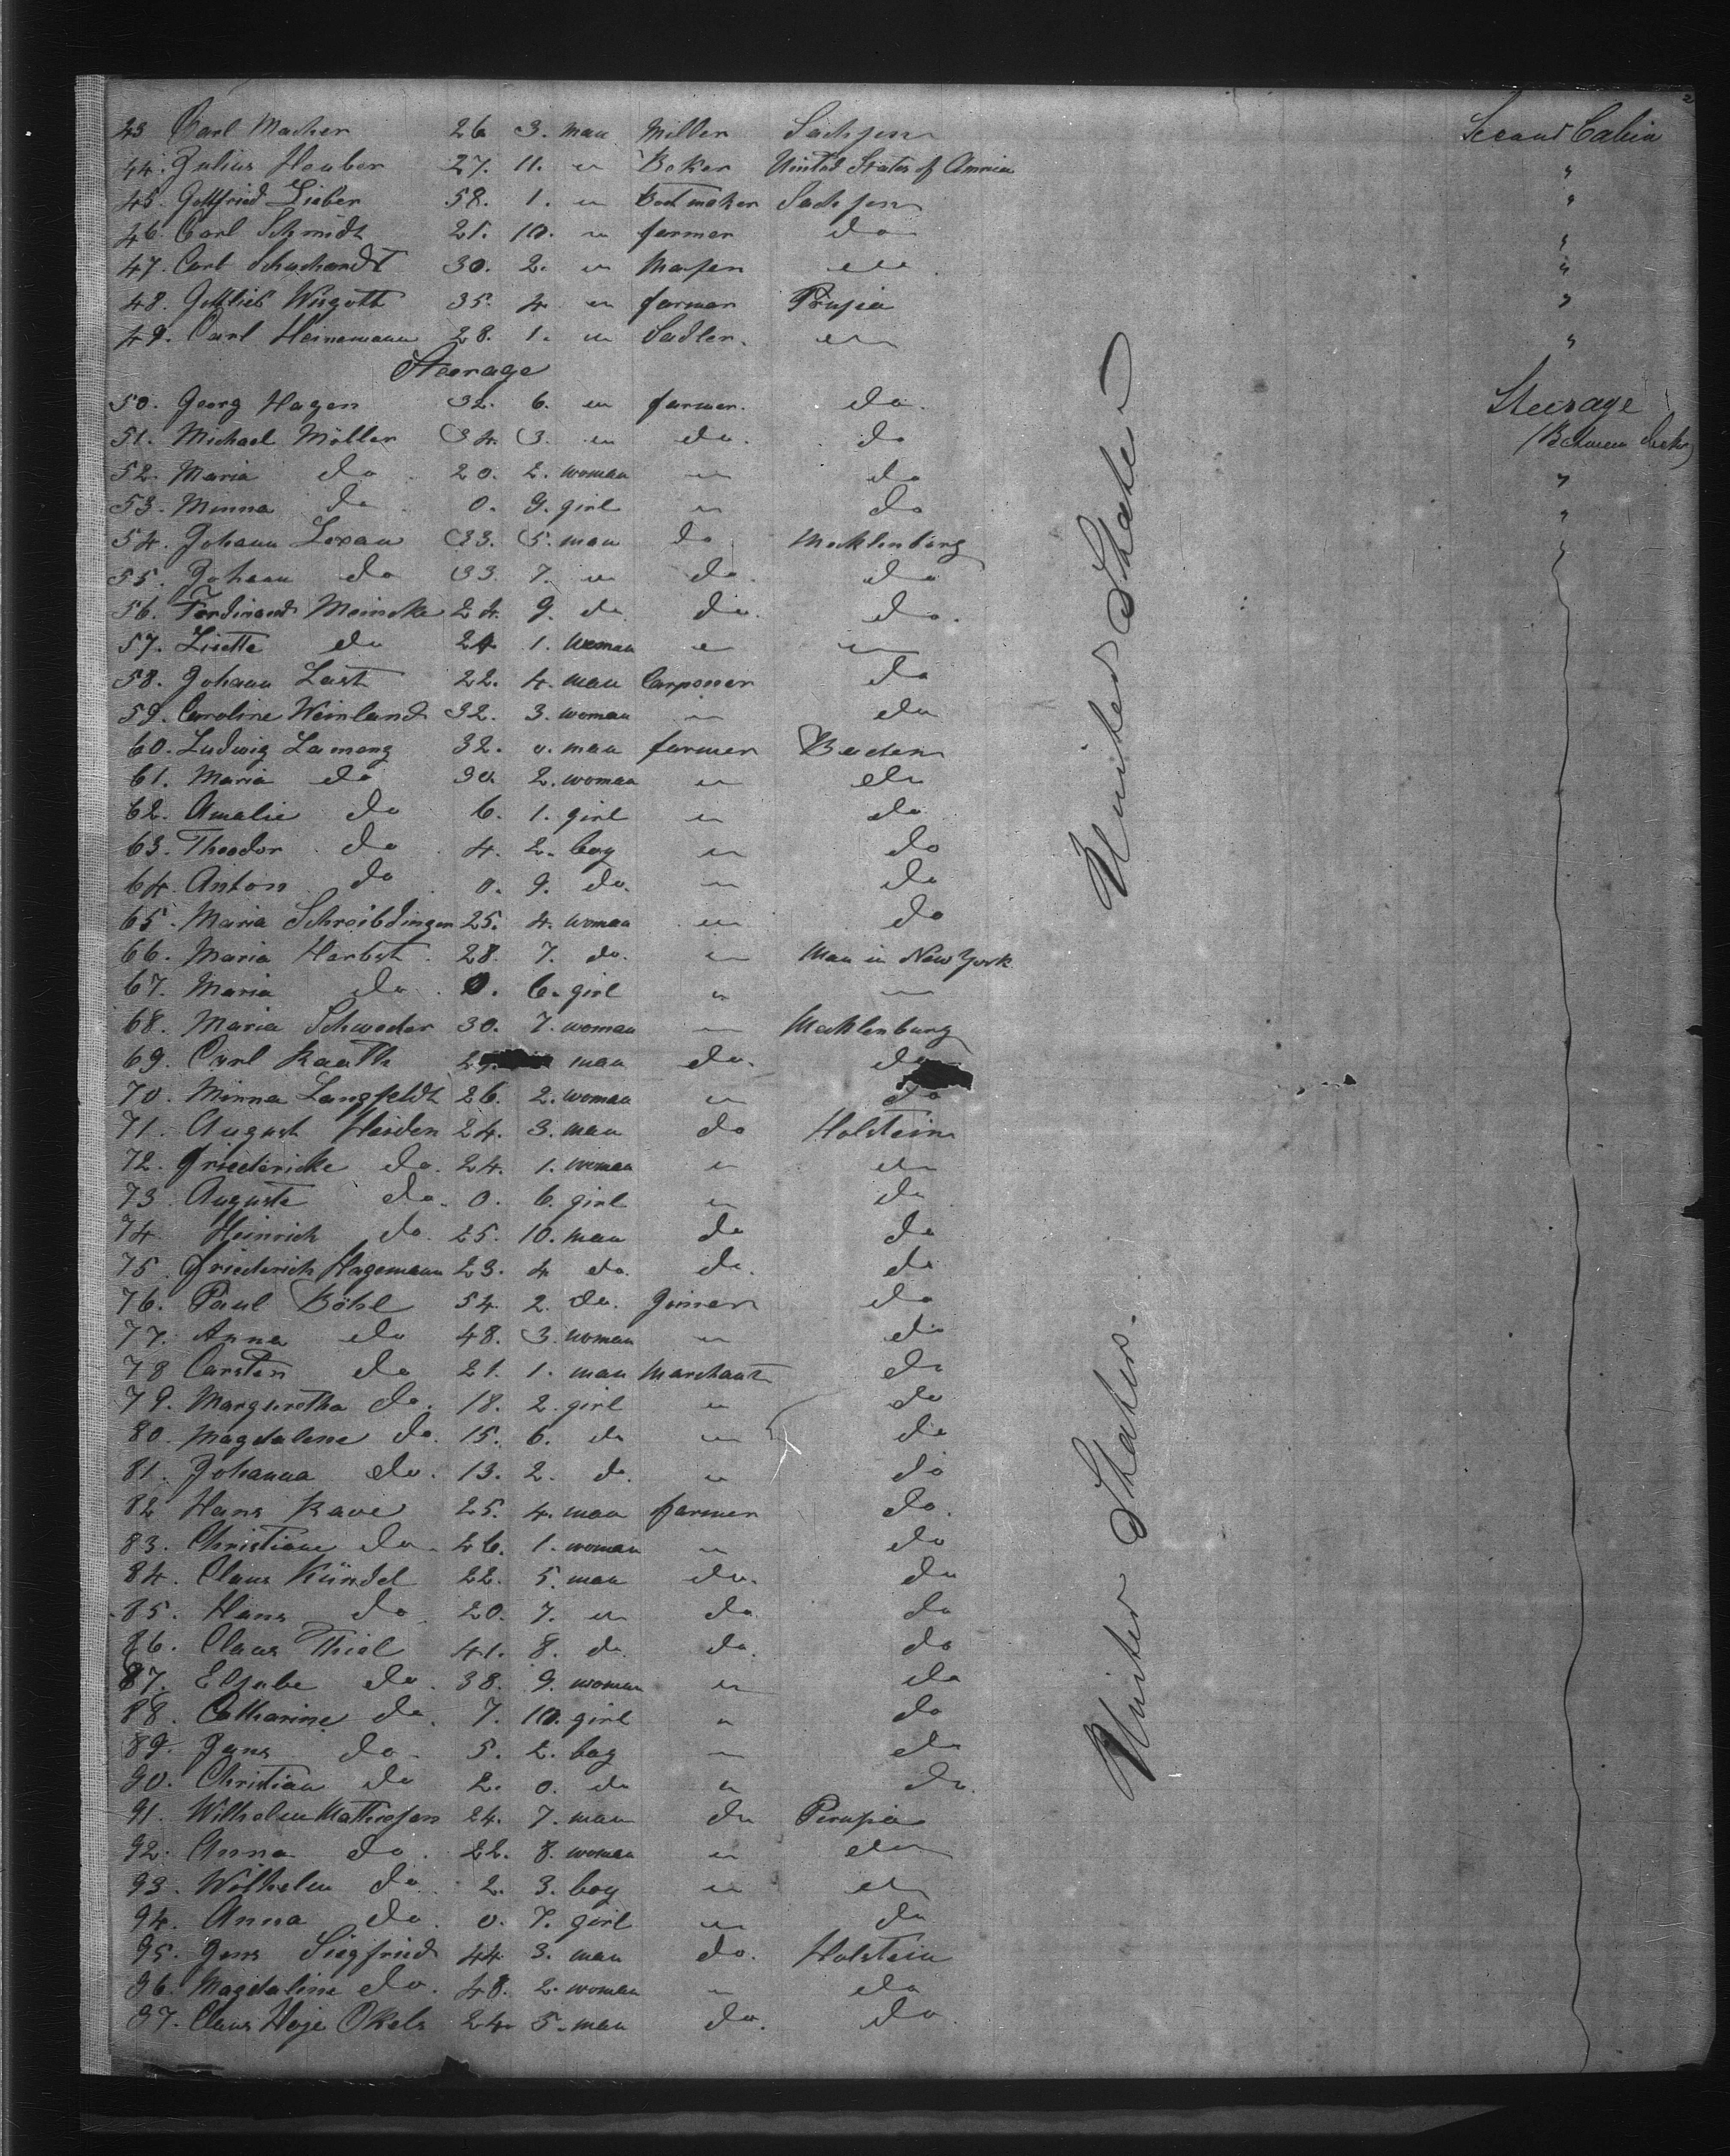 2
43 Carl Macher 26 3. man Miller Sachsen Secand Cabin
44. Julius Hauber 27. 11. " Baker Uintad States of Amrica "
45. Gottfried Lieber 58. 1. " Bootmaker Sachsen "
46. Carl Schmidt 21. 10. " farmer do "
47. Carl Schuchardt 30. 2. " Maſen " "
48. Gottlieb Wiegoth 35. 4. " farmer Pruſia "
49. Carl Heinemann 28. 1. " Sadler. " "
Steerage
50. Georg Hagen 32. 6. " farmer. do. Steerage
51. Michael Möller 34. 3. " do. do (Between decks)
52. Maria do 20. 2. woman " do "
53. Minna do 0. 9. girl " do "
54. Johann Loxau 33. 5. man do Mecklenburg
55. Johann do 33. 7. " do. do
56. Ferdinand Meincke 24. 9. do do. do.
57. Lisette do 24 1. Woman " "
58. Johann Last 22. 4. man Carpener do
59. Caroline Weinland 32. 3. woman " do
60. Ludwig Lamang 32. 0. man farmer Baden
61. Maria do 30. 2. woman " do
62. Amalie do 6. 1. girl " do
63. Theodor do 4. 2. boy " do
64. Anton do 0. 9. do. " do
65. Maria Schreibdingen 25. 4. woman " do
66. Maria Herbst 28. 7. do. " Man in New York
67. Maria do 0. 6. girl " "
68. Maria Schweder 30. 7. woman " Mecklenburg
69. Carl Raath man do. do
70. Minna Langfeldt 26. 2. woman " do
71. August Heiden 24. 3. man do Holstein
72. Friedericke do. 24. 1. woman " "
73. Auguste do. 0. 6. girl " do
74 Heinrich do. 25. 10. man do do
75 Friederich Hagemann 23. 4 do. do. do
76. Paul Böhl 54. 2. do. Joiner do
77. Anna do 48. 3. woman " do
78 Carsten do 21. 1. man Marchant do
79. Margaretha do. 18. 2. girl " do
80. Magdalene do. 15. 6. do " do
81. Johanna do. 13. 2. do. " do
82 Hans Rave 25. 4. man farmer do.
83. Christiane do. 26. 1. woman " do
84. Claus Kündel 22. 5. man do. do
85. Hans do 20. 7. " do. do
86. Claus Thiel 41. 8. do. do. do
87. Elsabe do. 38. 9. woman " do
88. Catharine do. 7. 10. girl " do
89. Jans do. 5. 2. boy " do
90. Christian do 2. 0. do " do.
91. Wilhelm Mathieſen 24. 7. man do Pruſia
92. Anna do. 22. 8. woman " do
93. Wilhelm do. 2. 3. boy " "
94. Anna do. 0. 7. girl " do
95. Jens Siegfried 44. 3. man do. Holstein
96. Magdaline do. 48. 2. woman " do
97. Claus Hoje Okels 24. 5. man do. do.
United States
United States.